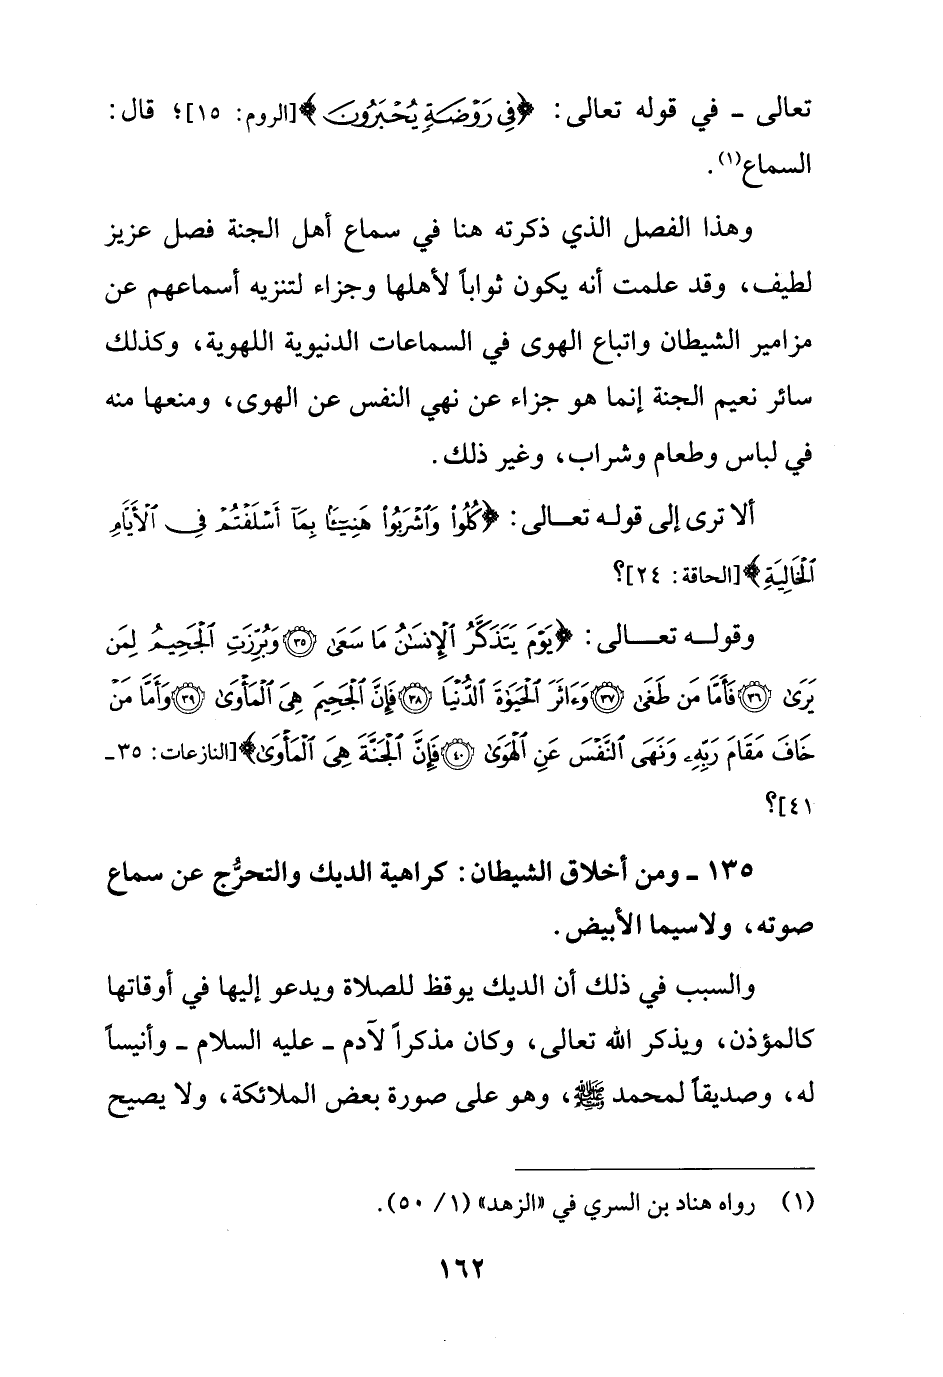 تعالى ـ في قوله تعالى: ﴿فِي رَوْضَةٍ يُحْبَرُونَ﴾[الروم: ١٥]؛ قال:
السماع(١).
وهذا الفصل الذي ذكرته هنا في سماع أهل الجنة فصل عزيز
لطيف، وقد علمت أنه يكون ثواباً لأهلها وجزاء لتنزيه أسماعهم عن
مزامير الشيطان واتباع الهوى في السماعات الدنيوية اللهوية، وكذلك
سائر نعيم الجنة إنما هو جزاء عن نهي النفس عن الهوى، ومنعها منه
في لباس وطعام وشراب، وغير ذلك.
ألا ترى إلى قوله تعالى: ﴿كُلُوا۟ وَٱشْرَبُوا۟ هَنِيٓـَٔۢا بِمَآ أَسْلَفْتُمْ فِى ٱلْأَيَّامِ
ٱلْخَالِيَةِ﴾[الحاقة: ٢٤]؟
وقوله تعالى: ﴿يَوْمَ يَتَذَكَّرُ ٱلْإِنسَٰنُ مَا سَعَىٰ ۝٣٥ وَبُرِّزَتِ ٱلْجَحِيمُ لِمَن
يَرَىٰ ۝٣٦ فَأَمَّا مَن طَغَىٰ ۝٣٧ وَءَاثَرَ ٱلْحَيَوٰةَ ٱلدُّنْيَا ۝٣٨ فَإِنَّ ٱلْجَحِيمَ هِىَ ٱلْمَأْوَىٰ ۝٣٩ وَأَمَّا مَنْ
خَافَ مَقَامَ رَبِّهِۦ وَنَهَى ٱلنَّفْسَ عَنِ ٱلْهَوَىٰ ۝٤٠ فَإِنَّ ٱلْجَنَّةَ هِىَ ٱلْمَأْوَىٰ﴾[النازعات: ٣٥ـ
٤١]؟
١٣٥ ـ ومن أخلاق الشيطان: كراهية الديك والتحرُّج عن سماع
صوته، ولاسيما الأبيض.
والسبب في ذلك أن الديك يوقظ للصلاة ويدعو إليها في أوقاتها
كالمؤذن، ويذكر الله تعالى، وكان مذكراً لآدم ـ عليه السلام ـ وأنيساً
له، وصديقاً لمحمد ﷺ، وهو على صورة بعض الملائكة، ولا يصيح
(١) رواه هناد بن السري في «الزهد» (١/ ٥٠).
١٦٢